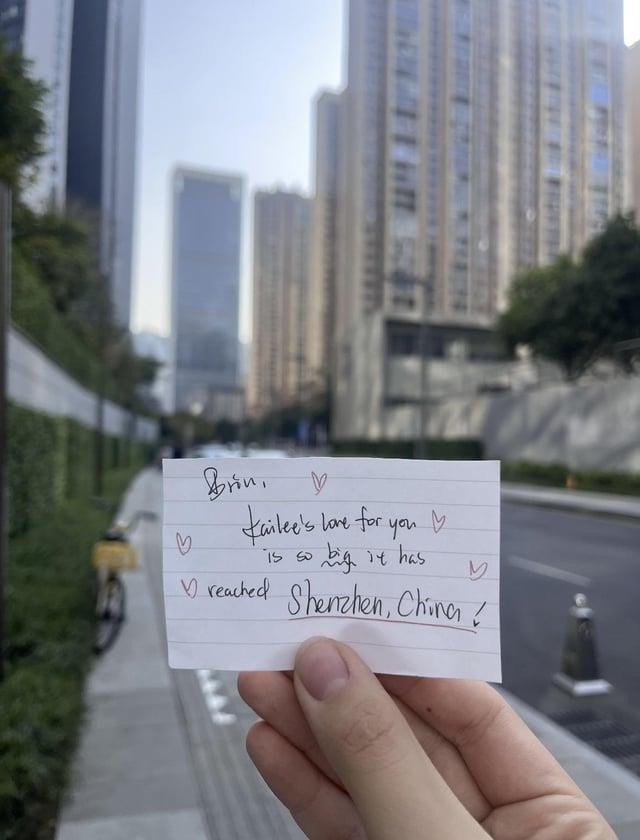 Brin,
Kailee's love for you
is so big it has
reached Shenzhen, China!